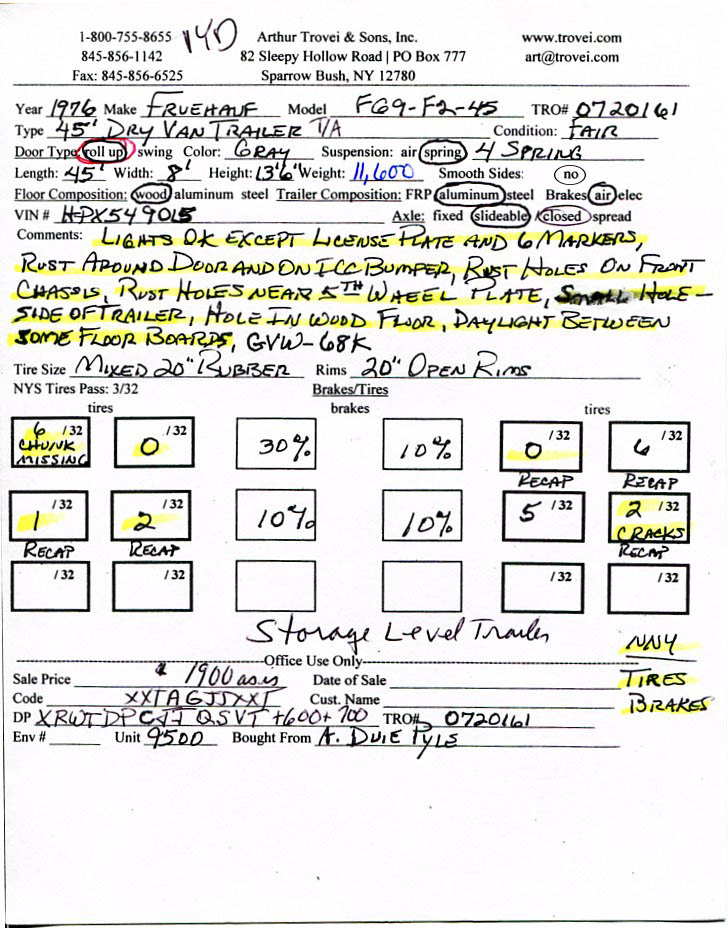 1-800-755-8655 Arthur Trovei & Sons, Inc. www.trovei.com
845-856-1142 82 Sleepy Hollow Road | PO Box 777 art@trovei.com
Fax: 845-856-6525 Sparrow Bush, NY 12780
Year 1976 Make FRUEHAUF Model FG9-F2-45 TRO# 0720161
Type 45' DRY VAN TRAILER T/A Condition: FAIR
Door Type: roll up swing Color: GRAY Suspension: air spring 4 SPRING
Length: 45' Width: 8' Height: 13'6" Weight: 11,600 Smooth Sides: no
Floor Composition: wood aluminum steel Trailer Composition: FRP aluminum steel Brakes air elec
VIN # HPX549015 Axle: fixed slideable closed spread
Comments: LIGHTS OK EXCEPT LICENSE PLATE AND 6 MARKERS,
RUST AROUND DOOR AND ON ICC BUMPER, RUST HOLES ON FRONT
CHASSIS, RUST HOLES NEAR 5TH WHEEL PLATE, SMALL HOLE-
SIDE OF TRAILER, HOLE IN WOOD FLOOR, DAYLIGHT BETWEEN
SOME FLOOR BOARDS, GVW-68K
Tire Size MIXED 20" RUBBER Rims 20" OPEN RIMS
NYS Tires Pass: 3/32 Brakes/Tires
tires brakes tires
6 /32 0 /32 30% 10% 0 /32 6 /32
CHUNK
MISSING
RECAP RECAP
1 /32 2 /32 10% 10% 5 /32 2 /32
CRACKS
RECAP RECAP RECAP
/32 /32 /32 /32
Storage Level Trailer
NNY
Office Use Only
Sale Price $ 1900 as is Date of Sale TIRES
Code XXTAGJSXXT Cust. Name BRAKES
DP +600+ 700 TRO# 0720161
Env # Unit 9500 Bought From A. DUIE PYLE